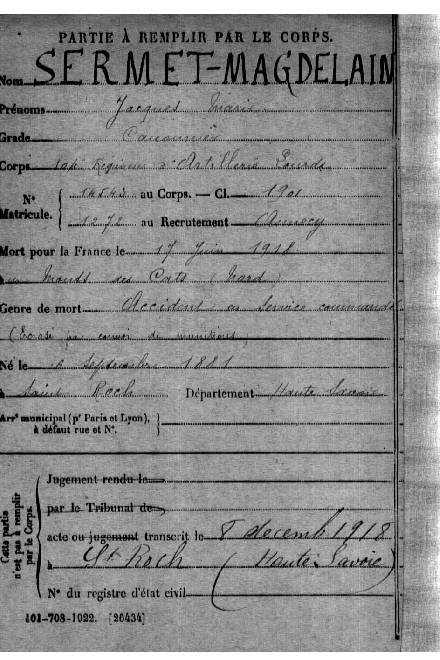 PARTIE À REMPLIR PAR LE CORPS.
Nom SERMET-MAGDELAIN
Prénoms Jacques Marie
Grade Canonnier
Corps 104 Régiment d'Artillerie Lourde
N° Matricule. 14543 au Corps. — Cl. 1901
1272 au Recrutement Annecy
Mort pour la France le 17 Juin 1918
Monts des Cats (Nord)
Genre de mort Accident en service commandé
(Ecrasé par convoi de munitions)
Né le 6 Septembre 1881
à Saint Roch Département Haute Savoie
Arrt municipal (pr Paris et Lyon),
à défaut rue et N°.
Cette partie n'est pas à remplir par le Corps.
Jugement rendu le
par le Tribunal de
acte ou jugement transcrit le 8 decemb 1918
à St Roch (Haute Savoie)
N° du registre d'état civil
101-708-1022. [26434]